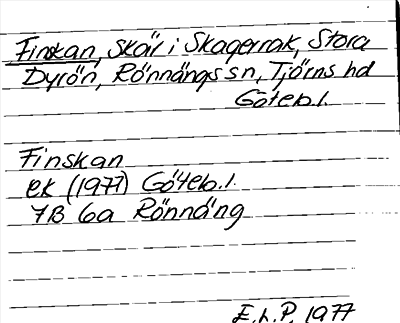 Finskan, Skär i Skagerrak, Stora
Dyrön, Rönnängs sn, Tjörns hd
Göteb. l.
Finskan
ek (1977) Göteb. l.
7B 6a Rönnäng
E. h. P. 1977